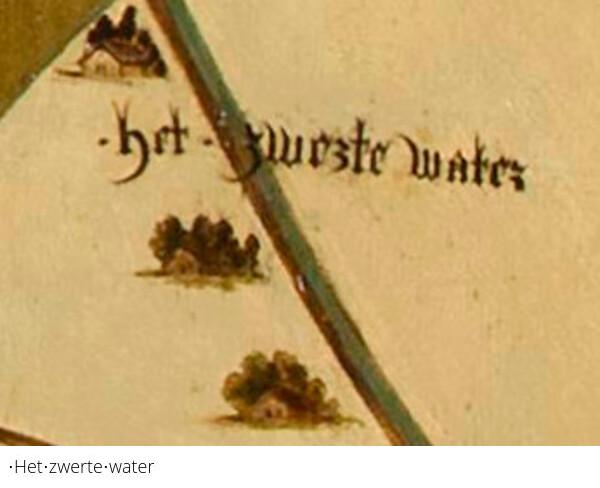 ·het·zwerte water
·Het·zwerte·water